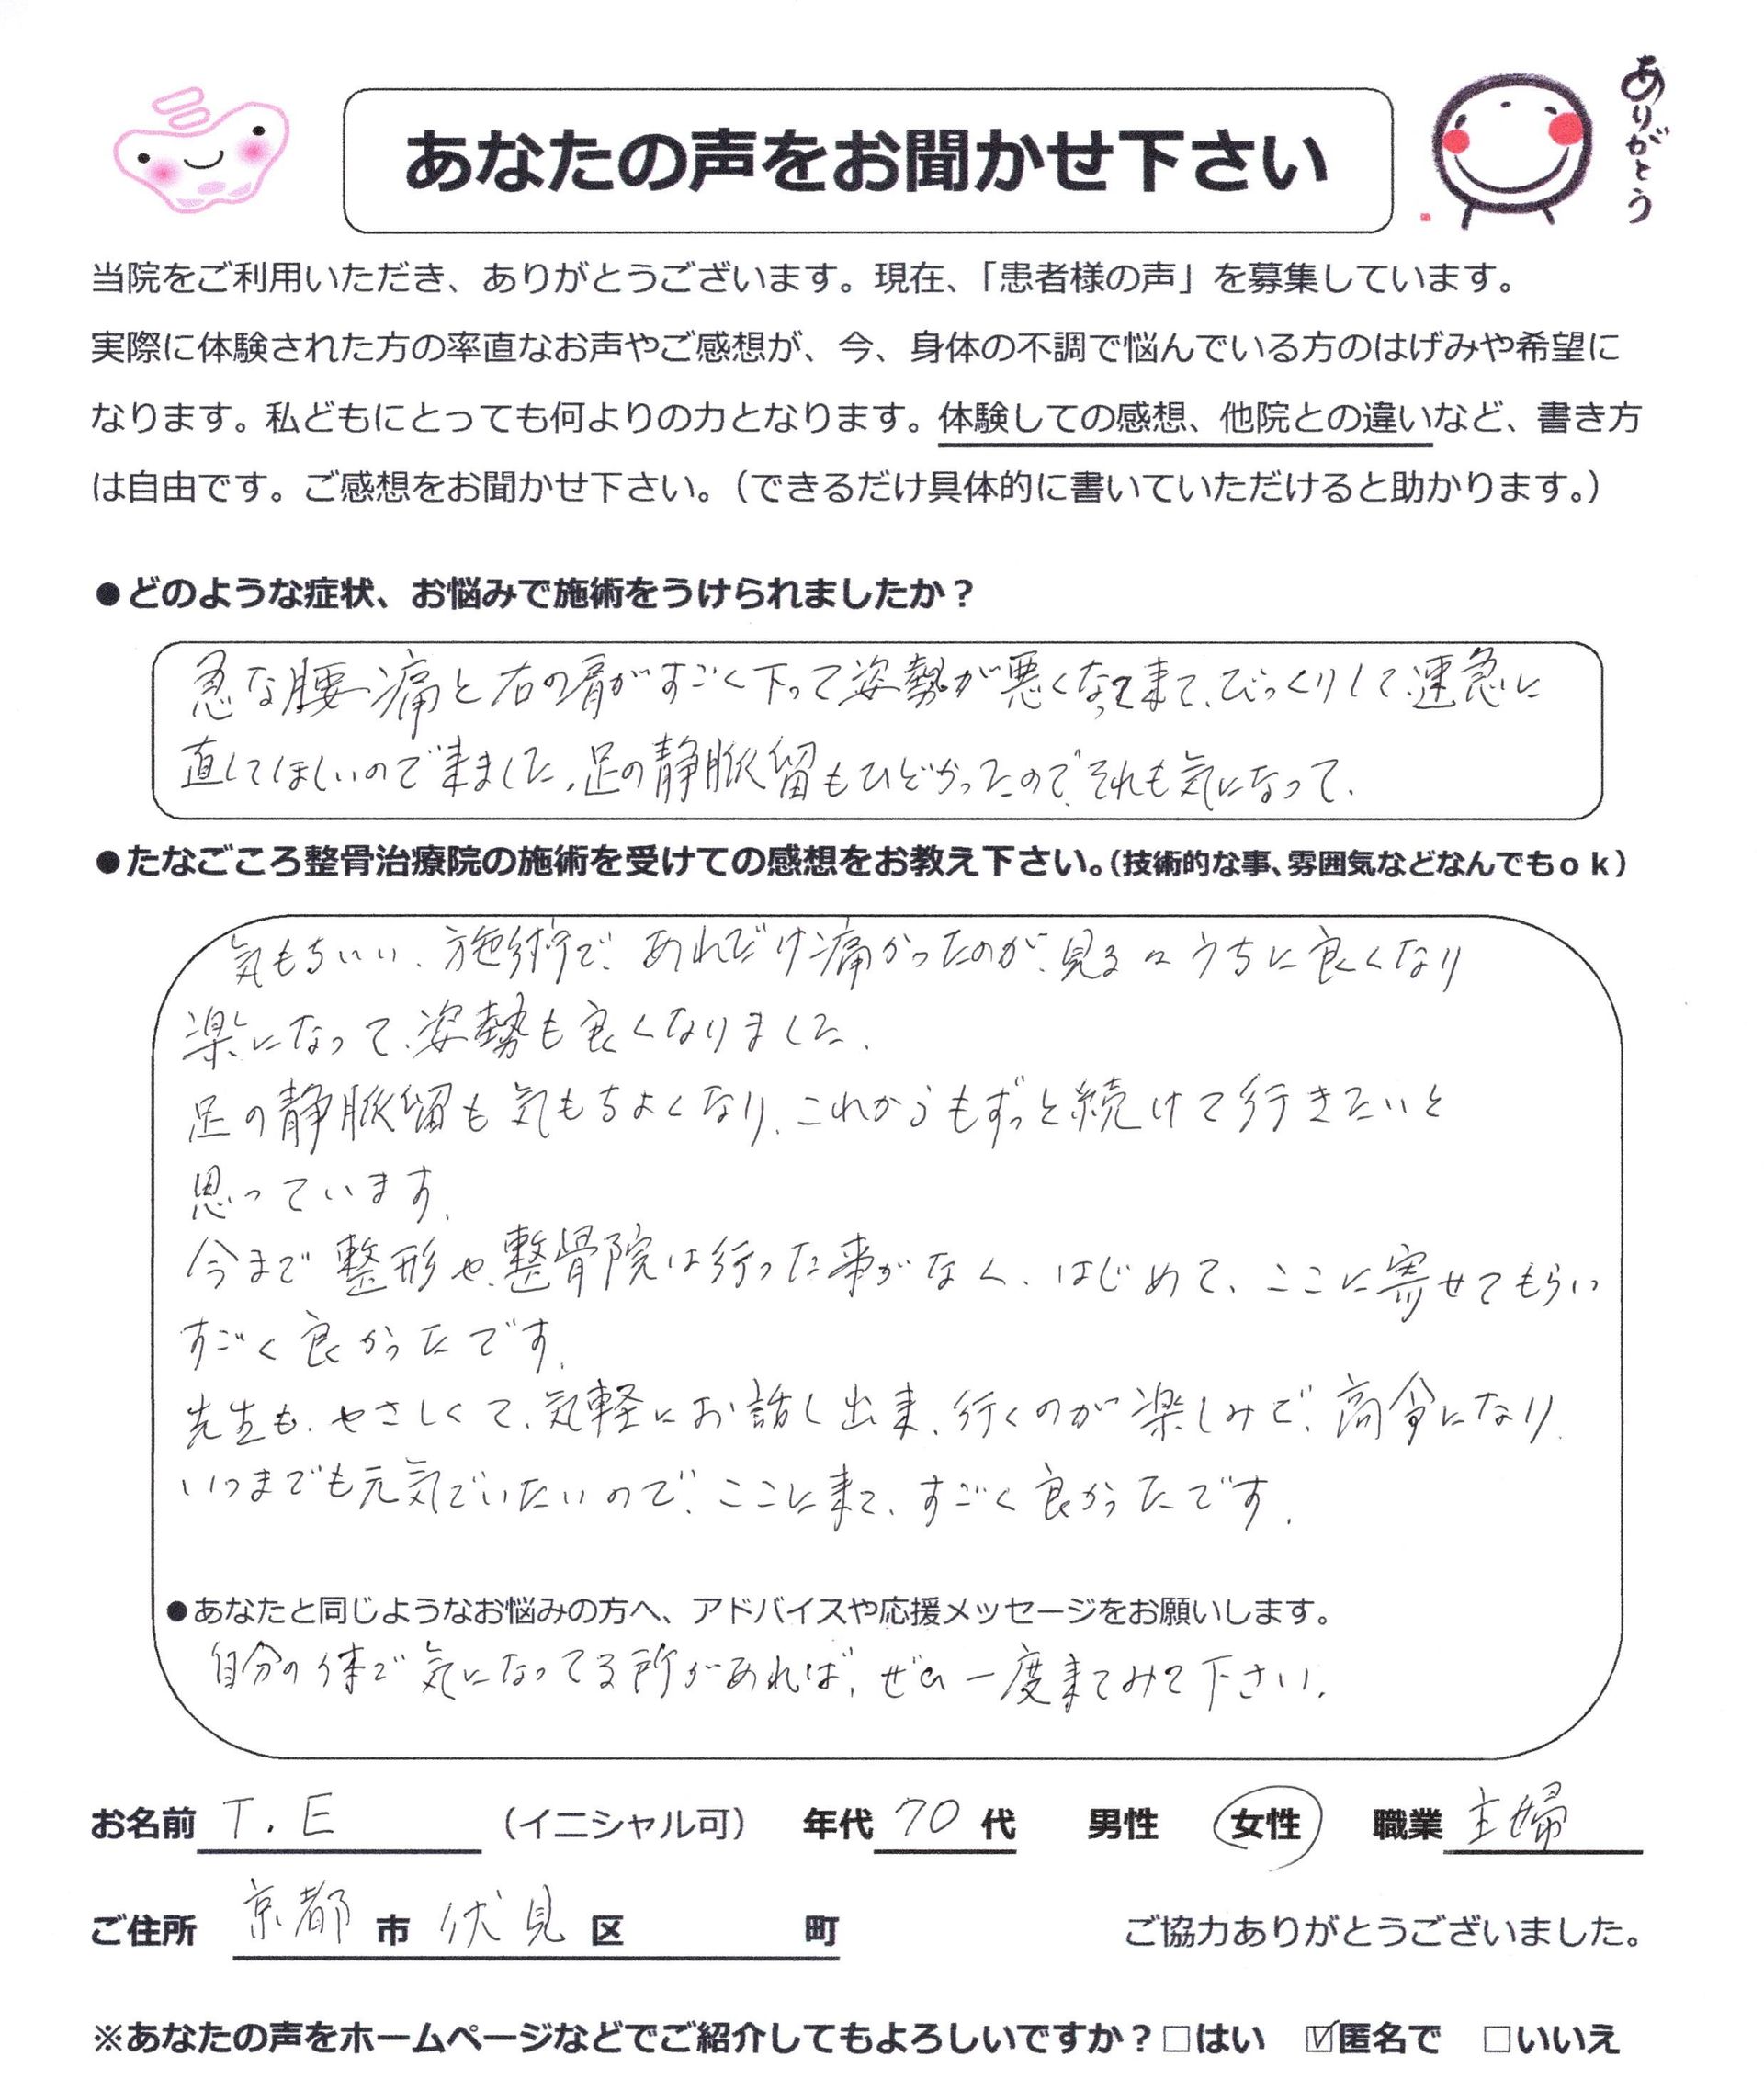 あなたの声をお聞かせ下さい
ありがとう
当院をご利用いただき、ありがとうございます。現在、「患者様の声」を募集しています。
実際に体験された方の率直なお声やご感想が、今、身体の不調で悩んでいる方のはげみや希望に
なります。私どもにとっても何よりの力となります。体験しての感想、他院との違いなど、書き方
は自由です。ご感想をお聞かせ下さい。（できるだけ具体的に書いていただけると助かります。）
●どのような症状、お悩みで施術をうけられましたか？
急な腰痛と右の肩がすごく下って姿勢が悪くなって来て、びっくりして、速急に
直してほしいので来ました。足の静脈留もひどかったので、それも気になって、
●たなごころ整骨治療院の施術を受けての感想をお教え下さい。（技術的な事、雰囲気などなんでもｏｋ）
気もちいい、施術で、あれだけ痛かったのが、見るゝうちに良くなり
楽になって、姿勢も良くなりました。
足の静脈留も気もちよくなり、これからもずっと続けて行きたいと
思っています。
今まで整形や、整骨院は行った事がなく、はじめて、ここに寄せてもらい
すごく良かったです。
先生も、やさしくて、気軽にお話し出来、行くのが楽しみで、高令になり、
いつまでも元気でいたいので、ここに来て、すごく良かったです。
●あなたと同じようなお悩みの方へ、アドバイスや応援メッセージをお願いします。
自分の体で気になってる所があれば、ぜひ一度来てみて下さい。
お名前 T.E （イニシャル可） 年代 70 代 男性 女性 職業 主婦
ご住所 京都 市 伏見 区 町 ご協力ありがとうございました。
※あなたの声をホームページなどでご紹介してもよろしいですか？□はい ☑匿名で □いいえ